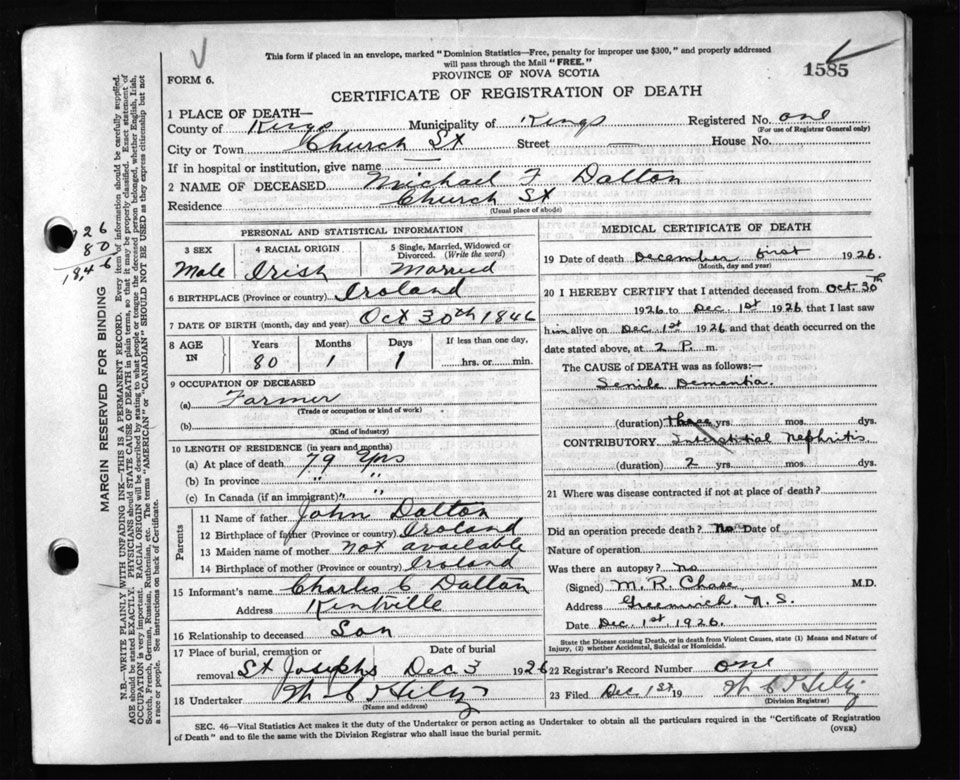 This form if placed in an envelope, marked "Dominion Statistics—Free, penalty for improper use $300," and properly addressed
will pass through the Mail "FREE."
FORM 6.
PROVINCE OF NOVA SCOTIA
1585
CERTIFICATE OF REGISTRATION OF DEATH
1 PLACE OF DEATH—
County of Kings Municipality of Kings Registered No. one
(For use of Registrar General only)
City or Town Church St Street House No.
If in hospital or institution, give name
2 NAME OF DECEASED Michael F Dalton
Residence Church St
(Usual place of abode)
PERSONAL AND STATISTICAL INFORMATION
3 SEX 4 RACIAL ORIGIN 5 Single, Married, Widowed or Divorced. (Write the word)
Male Irish Married
6 BIRTHPLACE (Province or country) Iroland
7 DATE OF BIRTH (month, day and year) Oct 30th 1846
8 AGE IN Years Months Days If less than one day,
80 1 1 hrs. or min.
9 OCCUPATION OF DECEASED
(a) Farmer
(Trade or occupation or kind of work)
(b)
(Kind of industry)
10 LENGTH OF RESIDENCE (in years and months)
(a) At place of death 79 Yrs
(b) In province " "
(c) In Canada (if an immigrant) " "
Parents
11 Name of father John Dalton
12 Birthplace of father (Province or country) Iroland
13 Maiden name of mother not available
14 Birthplace of mother (Province or country) Iroland
15 Informant's name Charles C Dalton
Address Kentville
16 Relationship to deceased Son
17 Place of burial, cremation or Date of burial
removal St Josephs Dec 3 1926
18 Undertaker
(Name and address)
MEDICAL CERTIFICATE OF DEATH
19 Date of death December first 1926.
(Month, day and year)
20 I HEREBY CERTIFY that I attended deceased from Oct. 30th
1926 to Dec 1st 1926 that I last saw
him alive on Dec. 1st 1926 and that death occurred on
date stated above, at 2 P. m.
The CAUSE of DEATH was as follows:—
Senile Dementia.
(duration) three yrs. mos. dys.
CONTRIBUTORY Interstitial Nephritis
(duration) 2 yrs. mos. dys.
21 Where was disease contracted if not at place of death?
Did an operation precede death? No Date of
Nature of operation
Was there an autopsy? no
(Signed) M. R. Chase M.D.
Address Greenwich, N.S.
Date Dec. 1st 1926.
State the Disease causing Death, or in death from Violent Causes, state (1) Means and Nature of
Injury, (2) whether Accidental, Suicidal or Homicidal.
22 Registrar's Record Number one
23 Filed Dec 1st 19
(Division Registrar)
SEC. 46—Vital Statistics Act makes it the duty of the Undertaker or person acting as Undertaker to obtain all the particulars required in the "Certificate of Registration
of Death" and to file the same with the Division Registrar who shall issue the burial permit.
(OVER)
26
80
1846
MARGIN RESERVED FOR BINDING
N.B.—WRITE PLAINLY WITH UNFADING INK—THIS IS A PERMANENT RECORD. Every item of information should be carefully supplied.
AGE should be stated EXACTLY. PHYSICIANS should STATE CAUSE OF DEATH in plain terms, so that it may be properly classified. Exact statement of
OCCUPATION is very important. RACIAL ORIGIN will be described by stating to what people or tongue the deceased person belonged, whether English, Irish,
Scotch, French, German, Russian, Ruthenian, etc. The terms "AMERICAN" or "CANADIAN" SHOULD NOT BE USED as they express citizenship but not
a race or people. See instructions on back of Certificate.